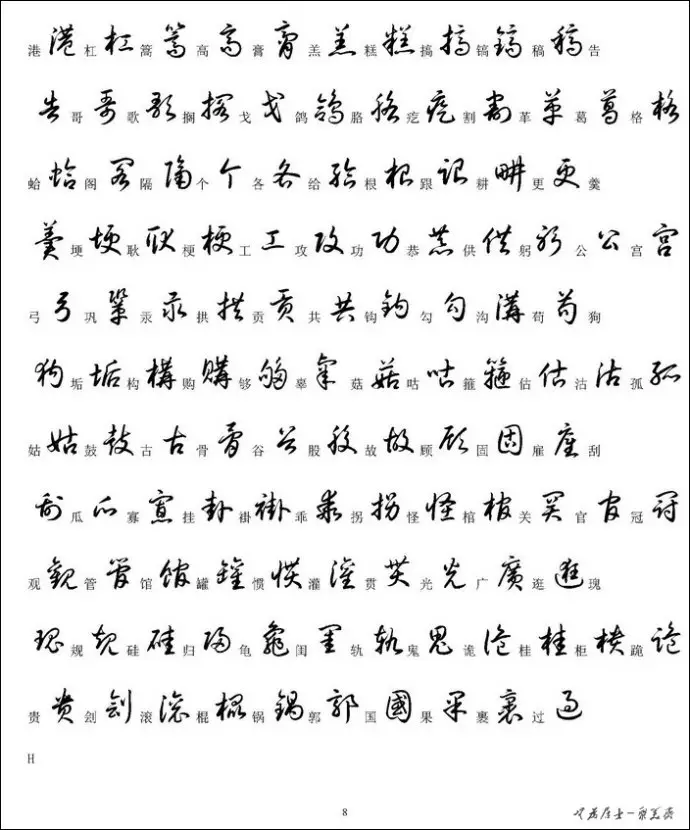 港港杠杠篙篙高高膏膏羔羔糕糕搞搞镐镐稿稿告
告哥哥歌歌搁搁戈戈鸽鸽胳胳疙疙割割革革葛葛格格
蛤蛤阁阁隔隔个个各各给给根根跟跟耕畊更更羹
羹埂埂耿耿梗梗工工攻攻功功恭恭供供躬躬公公宫宫
弓弓巩鞏汞汞拱拱贡贡共共钩钩勾勾沟溝苟苟狗
狗垢垢构構购購够够辜辜菇菇咕咕箍箍估估沽沽孤孤
姑姑鼓鼓古古骨骨谷谷股股故故顾顾固固雇雇刮
刮瓜瓜寡寡挂卦褂褂乖乖拐拐怪怪棺棺关关官官冠冠
观觀管管馆馆罐罐惯惯灌灌贯贯光光广廣逛逛瑰
瑰规规硅硅归归龟龜闺闺轨轨鬼鬼诡诡桂桂柜柜跪跪
贵贵刽刽滚滚棍棍锅锅郭郭国國果果裹裹过过
H
8